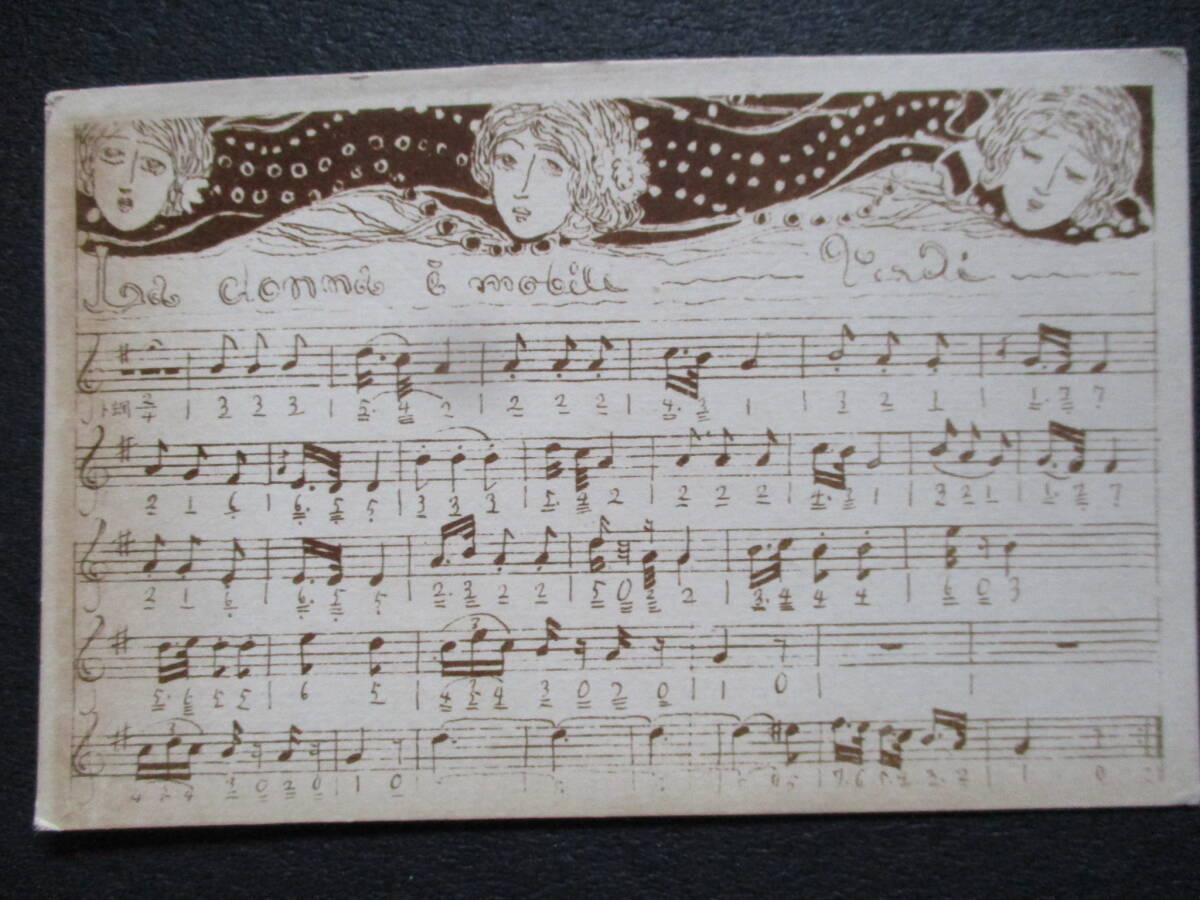 La donna è mobile Verdi
ト調 2/4 | 3 3 3 | 5. 4 2 | 2 2 2 | 4. 3 1 | 3 2 1 | 1. 7 7
2 1 6 | 6. 5 5 | 3 3 3 | 5. 4 2 | 2 2 2 | 4. 3 1 | 3 2 1 | 1. 7 7
2 1 6 | 6. 5 5 | 2. 3 2 2 | 5 0 2 2 | 3. 4 4 4 | 6 0 3
5. 6 5 5 | 6 5 | 4 5 4 3 0 2 0 | 1 0 | |
4 5 4 3 0 2 0 | 1 0